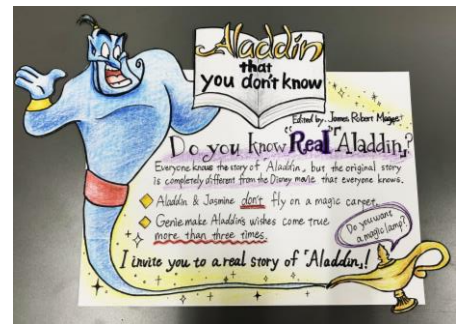 Aladdin
that
you don't know
Edited by James Robert Moiges
Do you know "Real" 「Aladdin」?
Everyone knows the story of "Aladdin", but the original story
is completely different from the Disney movie that everyone knows.
Aladdin & Jasmine don't fly on a magic carpet.
Genie make Aladdin's wishes come true
more than three times.
Do you want
a magic lamp?
I invite you to a real story of 「Aladdin」!